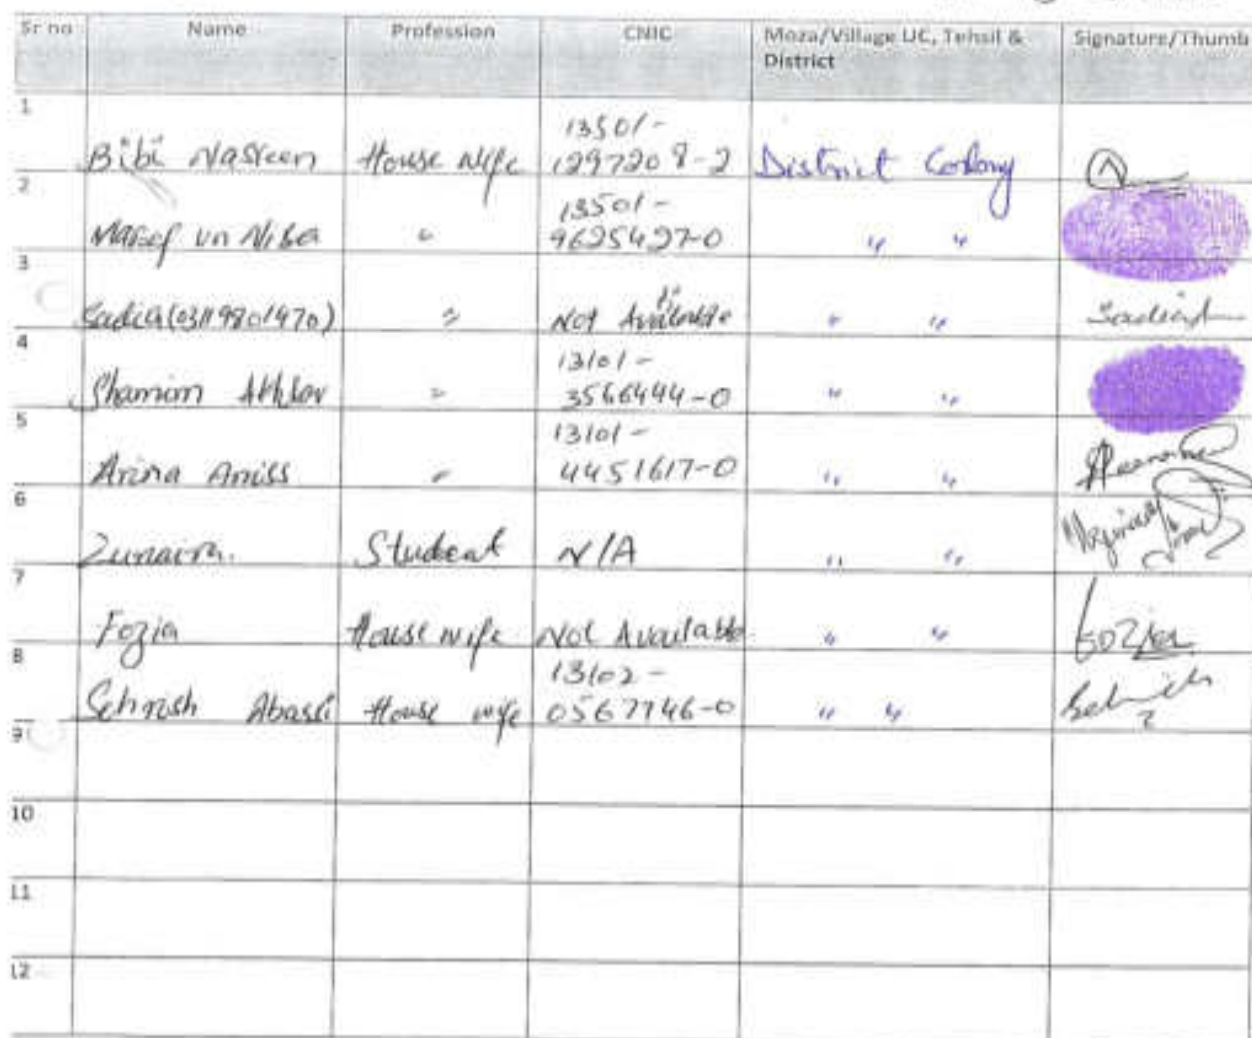 Sr no Name Profession CNIC Moza/Village UC, Tehsil & District Signature/Thumb
1 Bibi Nasreen House wife 13501-1297208-2 District Colony
2 un Nisa " 13501-9625427-0 " "
3 Sadia (03119801470) " Not Available " " Sadia
4 Shamim Akhtar " 13101-3566444-0 " "
5 Arina Aniss " 13101-4451617-0 " "
6 Zunaira. Student N/A " "
7 Fozia House wife Not Available " " Fozia
8 Sehrish Abassi House wife 13102-0567746-0 " " Sehrish
9
10
11
12